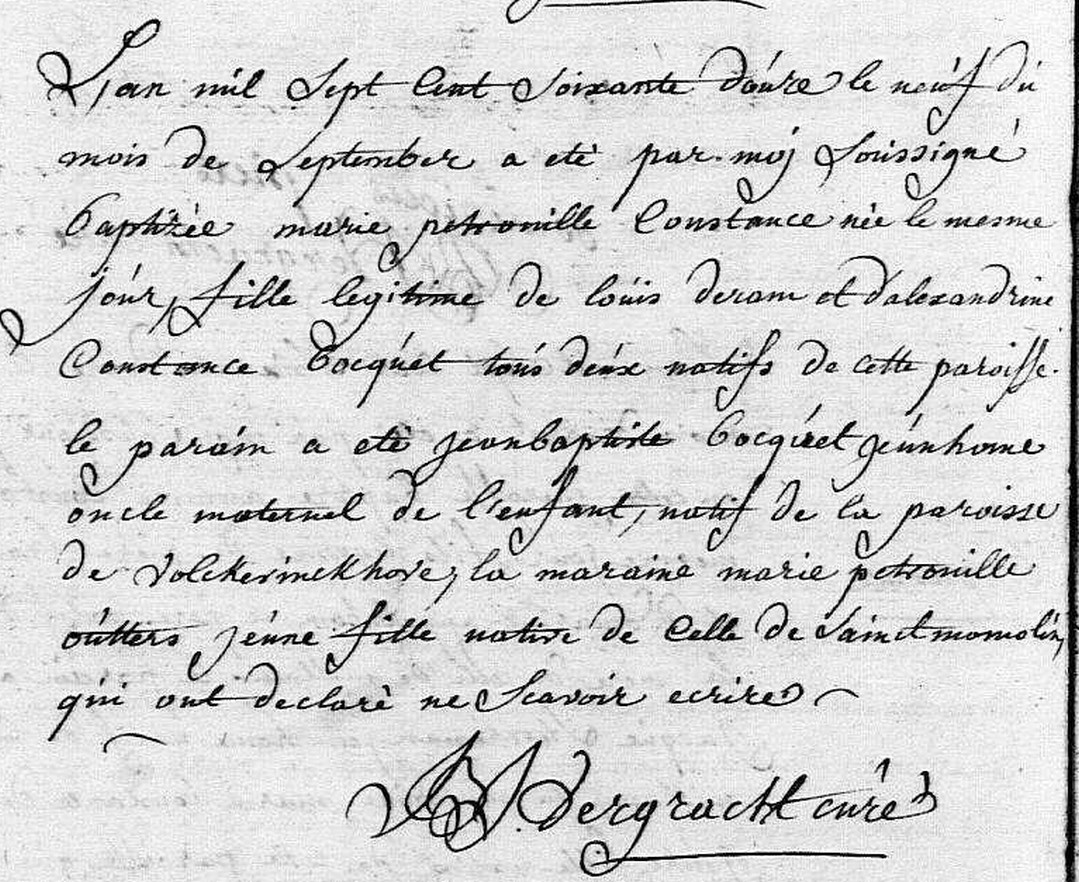 L'an mil sept cent soixante douze le neuf du
mois de september a eté par moy soussigné
baptizée marie petronille Constance née le mesme
jour, fille legitime de loüis deram et d'alexandrine
Constance Bocquet tous deux natifs de cette paroisse.
le parain a eté jeanbaptiste Bocquet jeunhome
oncle maternel de l'enfant, natif de la paroisse
de Volckerinckhove, la maraine marie petronille
outters jeune fille native de celle de Sainctmomolin,
qui ont declaré ne scavoir ecrire
Dergracht curé